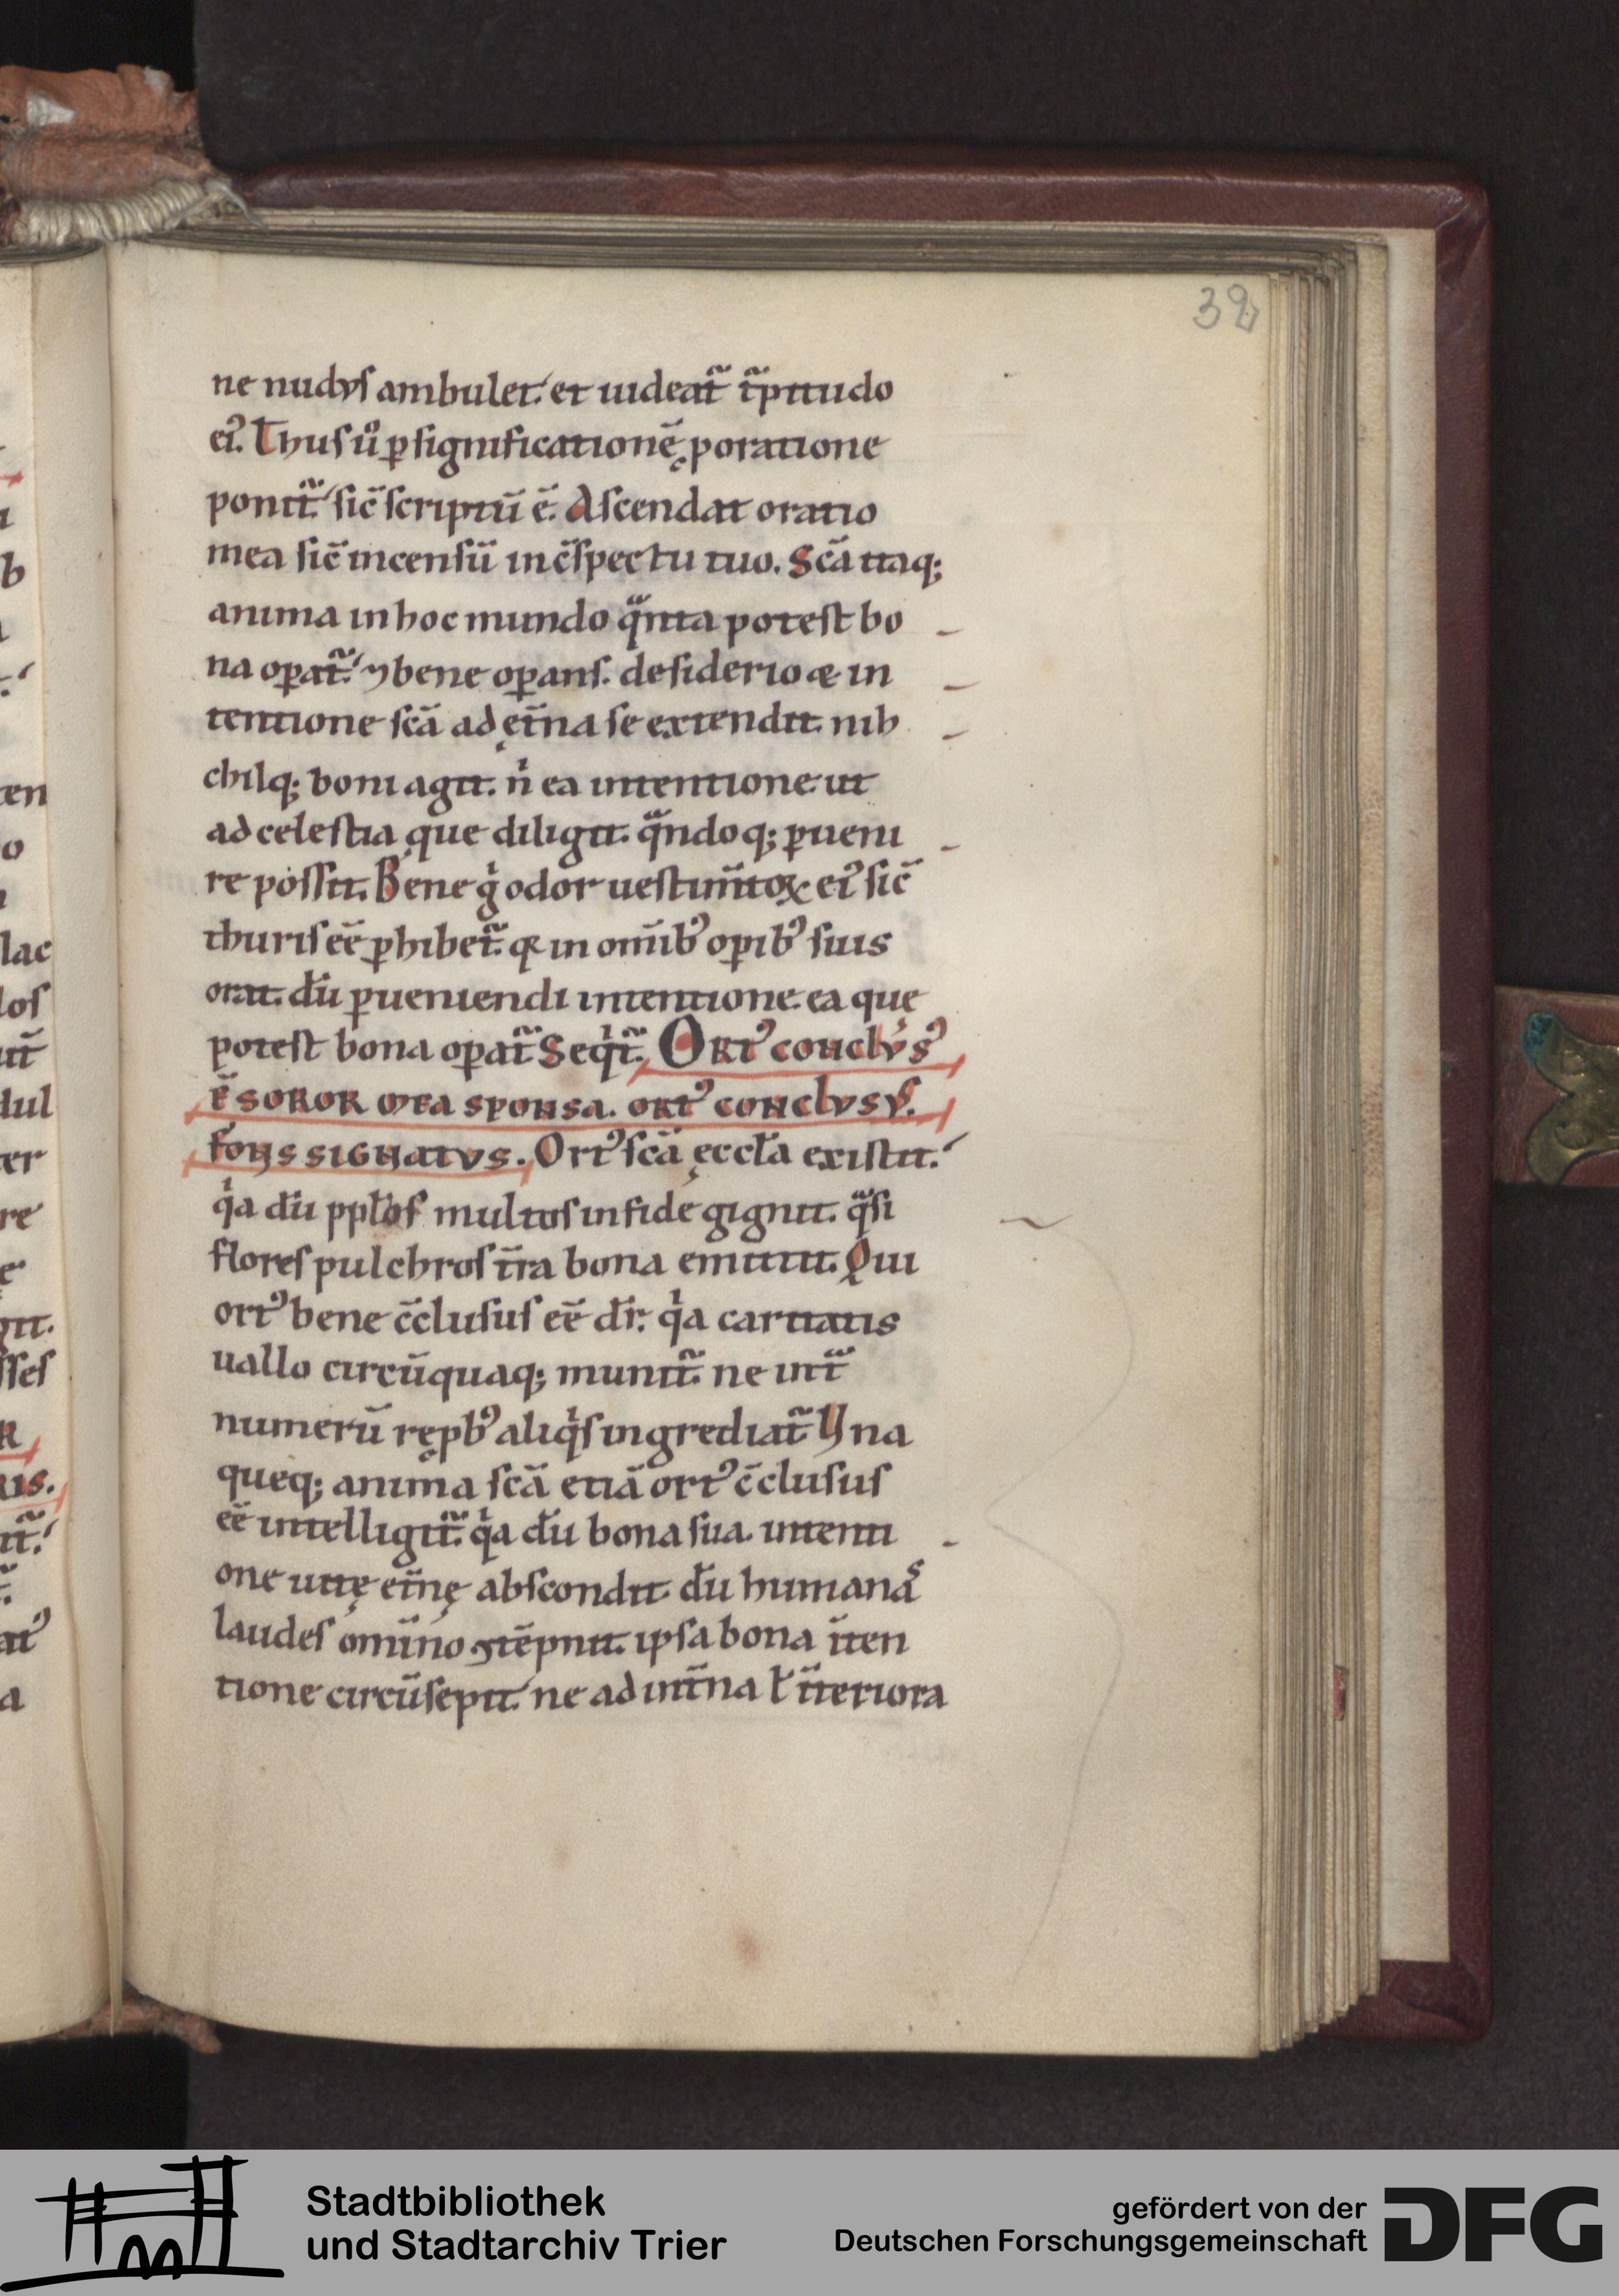 39
ne nudus ambulet. et uideat᷑ t᷑pitudo
ei᷒. Thus u᷒ ꝑ significationē ꝓ oratione
ponit᷑. sic̄ scriptū ē. Ascendat oratio
mea sic̄ incensū in c̄spectu tuo. Scā itaq;
anima in hoc mundo qᷓnta potest bo
na oꝑat᷑. ⁊ bene oꝑans. desiderio & in
tentione scā ad ęt̄na se extendit. nih
chilq; boni agit. n̍ ea intentione. ut
ad celestia que diligit. qᷓndoq; ꝑueni
re possit. Bene gͥ odor uestim̄toꝝ ei᷒ sic̄
thuris eē ꝑhibet᷑. qꝛ in om̄ib᷒ oꝑib᷒ suis
orat. dū ꝑueniendi intentione. ea quę
potest bona oꝑat᷑. Seqͥt᷑. Ort᷒ conclus᷒
ē soror mea sponsa. ort᷒ conclusus.
fons signatus. Ort᷒ scā ęccl̄a existit.
qͥa dū ppl̄os multos in fide gignit. qᷓsi
flores pulchros t̄ra bona emittit. Qui
ort᷒ bene c̄clusus eē dr̄. qͥa caritatis
uallo circūquaq; munit᷑. ne intᷓ
numerū rępb᷒ aliqͥs ingrediat᷑. Una
queq; anima scā etiā ort᷒ c̄clusus
eē intelligit᷑. qͥa dū bona sua intenti
one uitę et̄nę abscondit. dū humanaˢ
laudes om̄ino ꝯtēpnit. ipsa bona īten
tione circūsepit. ne ad int̄na ł īteriora
Stadtbibliothek
und Stadtarchiv Trier
gefördert von der
Deutschen Forschungsgemeinschaft
DFG